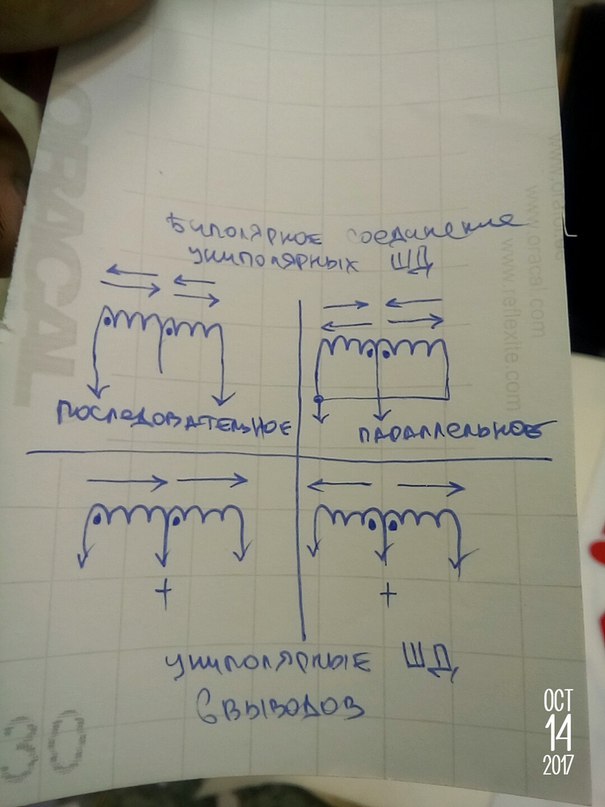 Биполярное соединение
униполярных ШД
последовательное
параллельное
+
+
униполярные ШД
6 выводов
ORACAL
www.oracal.com
www.reflexite.com
30
OCT
14
2017